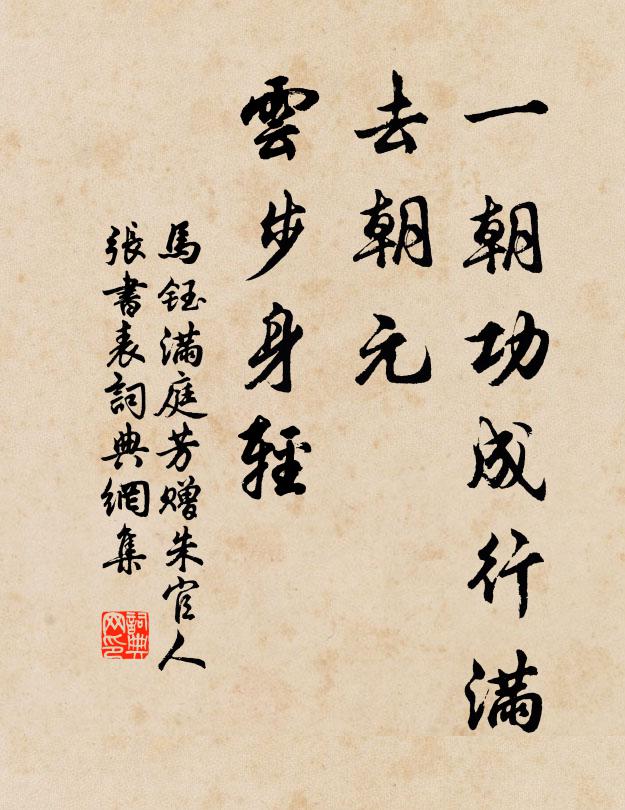 一朝功成行滿
去朝元
雲步身輕
馬鈺滿庭芳贈朱官人
張書表詞典網集
詞典网印